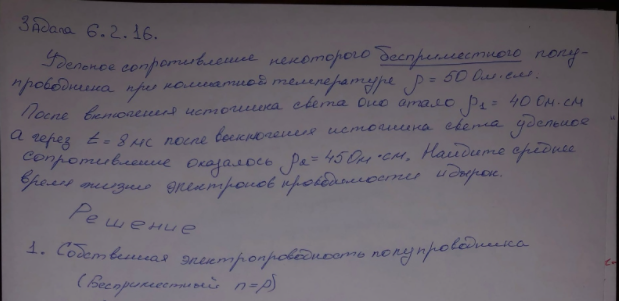 Задача 6.2.16.
Удельное сопротивление некоторого беспримесного полу-
проводника при комнатной температуре ρ = 50 Ом·см.
После включения источника света оно стало ρ₁ = 40 Ом·см
А через t = 8 мс после выключения источника света удельное
сопротивление оказалось ρ₂ = 45 Ом·см. Найдите среднее
время жизни электронов проводимости и дырок.
Решение
1. Собственная электропроводность полупроводника
(Беспримесный n = p)